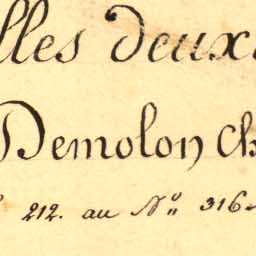 lles deux
Demolon Ch
º 212. au Nº 316